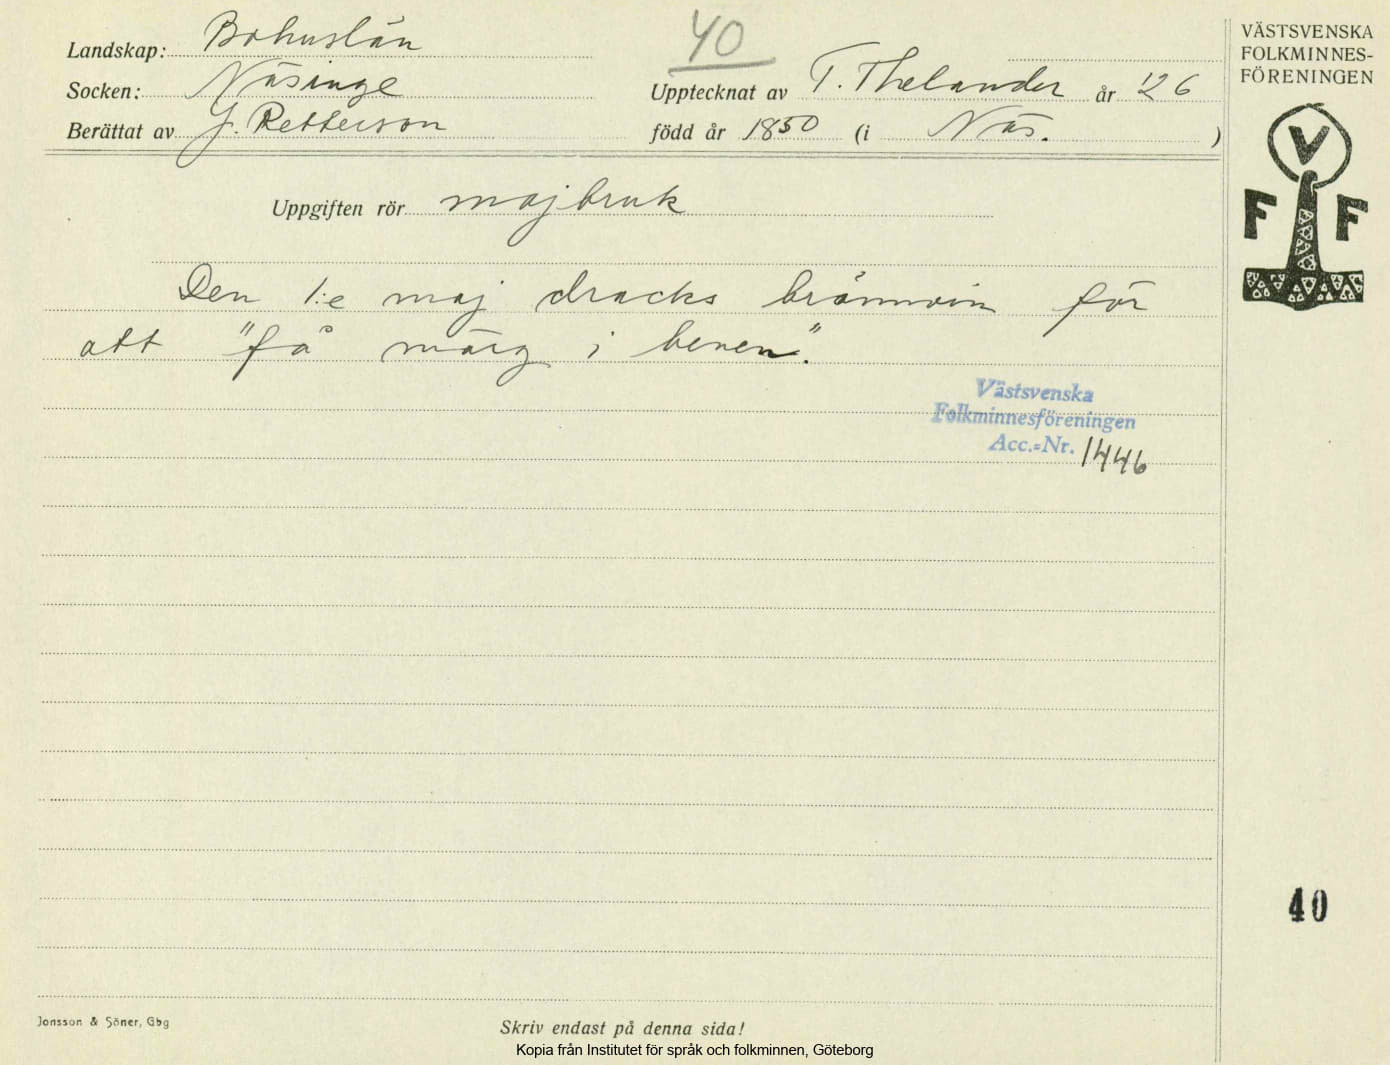 40
Landskap: Bohuslän
Socken: Näsinge
Upptecknat av T. Thelander år '26
Berättat av J. Petterson
född år 1850 (i Näs. )
Uppgiften rör majbruk
Den 1:e maj dracks brännvin för
att "få märg i benen".
Västsvenska
Folkminnesföreningen
Acc.-Nr. 1446
VÄSTSVENSKA
FOLKMINNES-
FÖRENINGEN
V
F F
40
Jonsson & Söner, Gbg
Skriv endast på denna sida!
Kopia från Institutet för språk och folkminnen, Göteborg